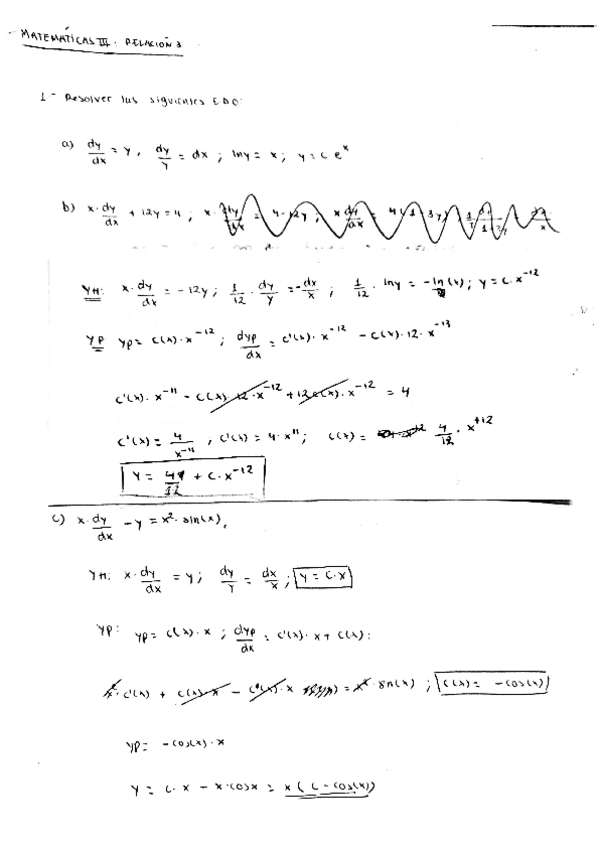 MATEMÁTICAS III. RELACIÓN 3
1- Resolver las siguientes EDO:
a) dy/dx = y, dy/y = dx ; lny = x ; y = c·e^x
b) x·dy/dx + 12y = 4 ;
YH: x·dy/dx = -12y ; 1/12·dy/y = -dx/x ; 1/12·lny = -ln(x) ; y = c·x^-12
YP yp = c(x)·x^-12 ; dyp/dx = c'(x)·x^-12 - c(x)·12·x^-13
c'(x)·x^-11 - c(x)·12·x^-12 + 12c(x)·x^-12 = 4
c'(x) = 4/x^-11 , c'(x) = 4·x^11 ; c(x) = 4/12·x^+12
+ c·x^-12
c) x·dy/dx - y = x²·sin(x),
YH: x·dy/dx = y ; dy/y = dx/x ; y = c·x
YP: yp = c(x)·x ; dyp/dx = c'(x)·x + c(x):
x²·c'(x) + c(x)·x - c(x)·x = x²·sin(x) ; c(x) = -cos(x)
yp = -cos(x)·x
y = c·x - x·cosx = x(c - cos(x))